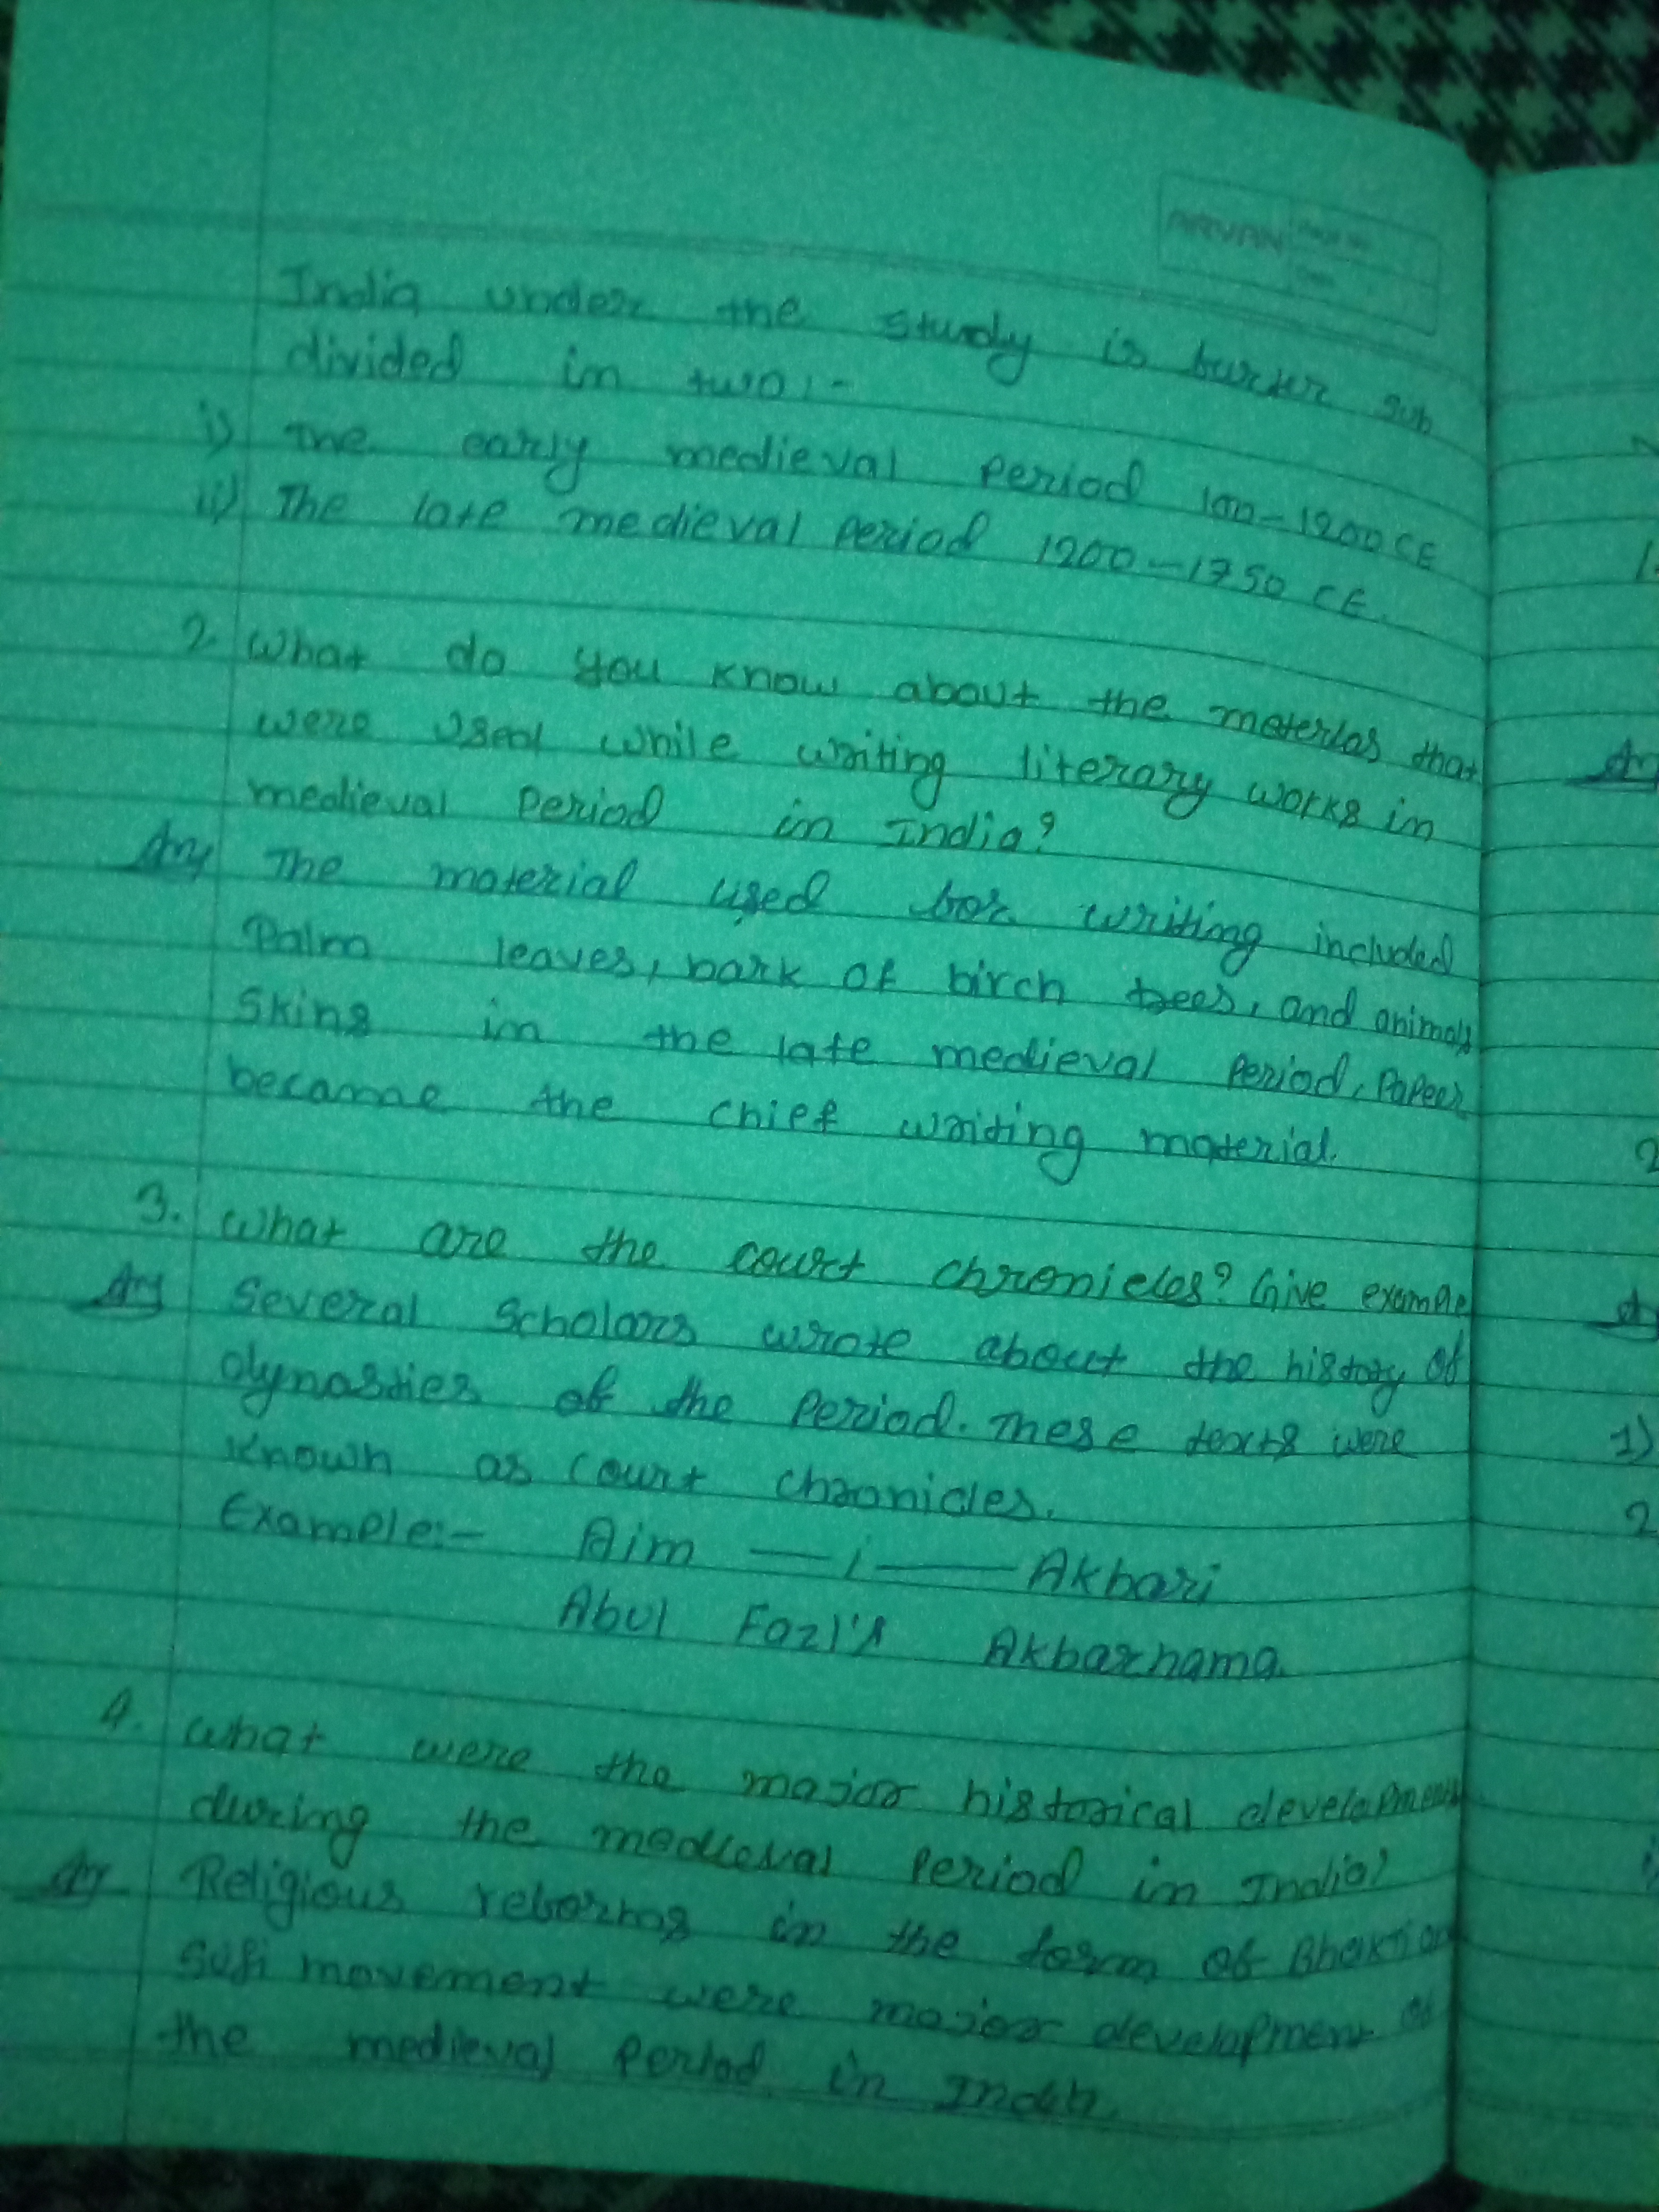 India under the study is burter sub
divided in two:-
i) The early medieval period 100-1200 CE
ii) The late medieval period 1200-1750 CE.
2. What do you know about the meterlas that
were used while writing literary works in
medieval period in India?
Ans The material used for writing included
Palm leaves, bark of birch trees, and animals
Skins in the late medieval period, Papers
becamae the chief writing material.
3. What are the court chronicles? Give example
Ans Several Scholars wrote about the history of
dynasties of the period. These texts were
known as court chronicles.
Example:- Aim — i — Akbari
Abul Fazl's Akbarnama
4. What were the major historical developments
during the medieval period in India?
Ans Religious reforms in the form of Bhakti
Sufi movement were major development of
the medieval period in